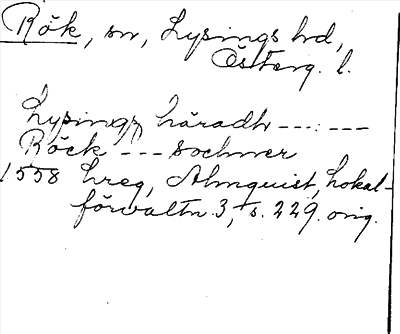 Rök, sn, Lysings hd,
Österg. l.
Lysingz häradh ---:---
Röck --- sochner
1558 Lreg, Almquist, Lokal-
förvaltn. 3, s. 229. orig.